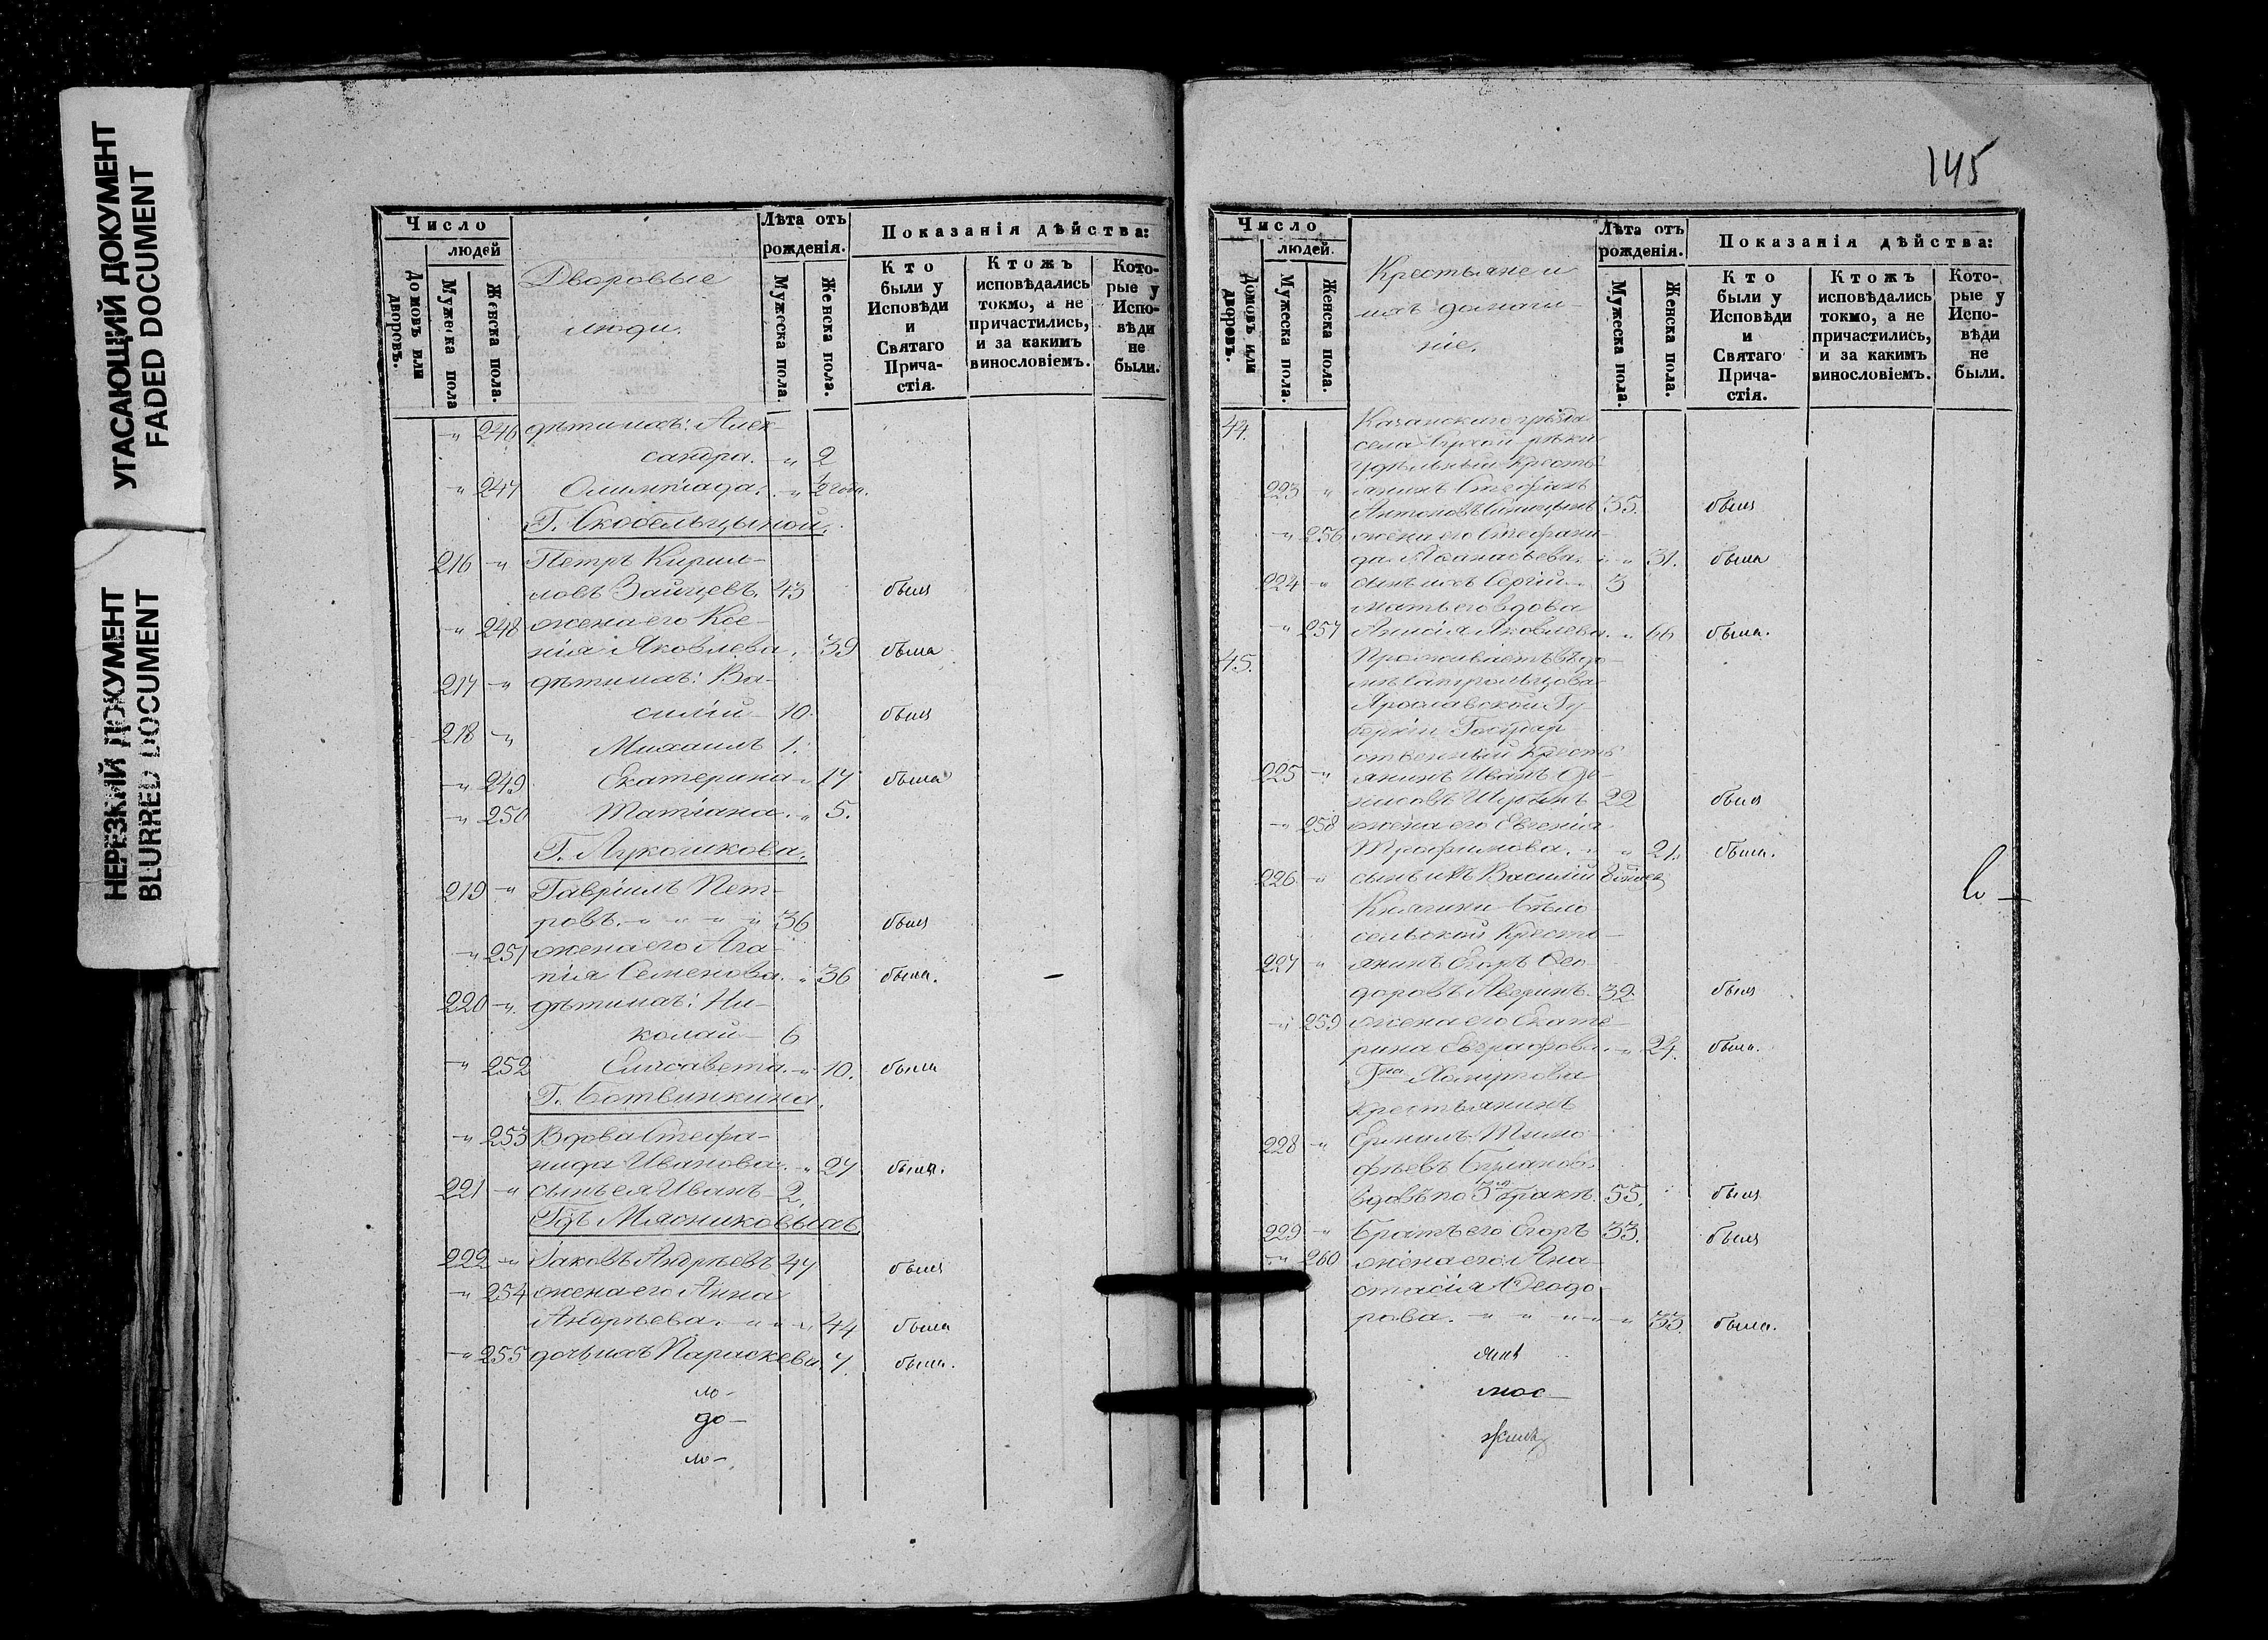 УГАСАЮЩИЙ ДОКУМЕНТ
FADED DOCUMENT
НЕРЕЗКИЙ ДОКУМЕНТ
BLURRED DOCUMENT
Число
людей
Домовъ или дворовъ.
Мужеска пола
Женска пола.
Дворовые
люди.
Лѣта отъ
рожденія.
Мужеска пола.
Женска пола.
Показанія дѣйства:
Кто
были у
Исповѣди
и
Святаго
Прича-
стія.
Ктожъ
исповѣдались
токмо, а не
причастились,
и за какимъ
винословіемъ.
Кото-
рые у
Испо-
вѣди
не
были.
246 дѣти ихъ: Алек-
сандра. 2
247 Олимпіада. 1/2 года.
Г. Скобельцыной.
216 Петръ Кирил-
ловъ Зайцевъ. 43 былъ
248 жена его Ксе-
нія Яковлева. 39 была
217 дѣти ихъ: Ва-
силій 10. былъ
218 Михаилъ 1.
249 Екатерина 17 была
250 Татіана. 5.
219 Гавріилъ Пет-
ровъ. 36 былъ
251 жена его Ага-
пія Семенова. 36 была.
220 дѣти ихъ: Ни-
колай 6
252 Елисавета. 10. была
Г. Ботвинкина.
253 Вдова Стефа-
нида Иванова. 27 была.
221 сынъ ея Иванъ 2.
Гдъ Мясниковыхъ
222 Іаковъ Андрѣевъ 47 былъ
254 жена его Анна
Андрѣева. 44 была
255 дочь ихъ Параскева. 7. была.
ло-
до-
ло-
145
Число
людей.
Домовъ или дворовъ.
Мужеска пола.
Женска пола.
Крестьяне и
ихъ домаш-
ніе.
Лѣта отъ
рожденія.
Мужеска пола.
Женска пола.
Показанія дѣйства:
Кто
были у
Исповѣди
и
Святаго
Прича-
стія.
Ктожъ
исповѣдались
токмо, а не
причастились,
и за какимъ
винословіемъ.
Кото-
рые у
Испо-
вѣди
не
были.
44. Казанскаго
села Сухой рѣки
Удѣльный кресть-
223 янинъ Стефанъ
Антоновъ 35. былъ
256 жена его Стефани-
да Аѳанасьева. 31. была
224 сынъ ихъ Сергій 3
мать его вдова
257 Анисія Яковлева. 66 была.
45. Проживаетъ въ до-
мѣ
Ярославской Гу-
берніи Государ-
ственный кресть-
225 янинъ Иванъ Де-
нисовъ 22 былъ
258 жена его Евгенія
Трофимова. 21. была.
226 сынъ ихъ Василій
Княгини Бѣло-
сельской Кресть-
227 янинъ Егоръ Ѳео-
доровъ Аверинъ. 32 былъ
259 жена его Екате-
рина Евграфова. 24. была.
Гна
крестьянинъ
228 Ермилъ Тимо-
фѣевъ
вдовъ по 3мъ бракѣ. 55. былъ
229 Братъ его Егоръ 33. былъ
260 жена его Ана-
стасія Ѳеодо-
рова. 33. была.